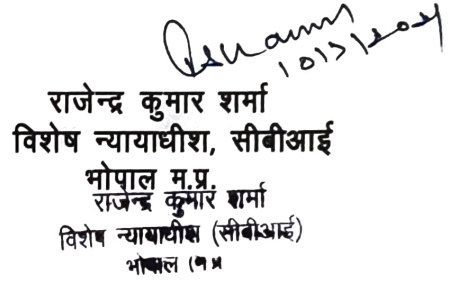 राजेन्द्र कुमार शर्मा
विशेष न्यायाधीश, सीबीआई
भोपाल म.प्र.
राजेन्द्र कुमार शर्मा
विशेष न्यायाधीश (सीबीआई)
भोपाल (म प्र